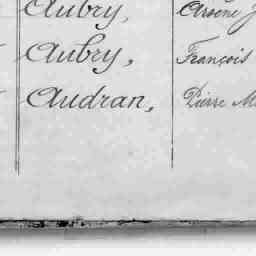 Aubry, Arsène J
Aubry, François
Audran, Pierre M